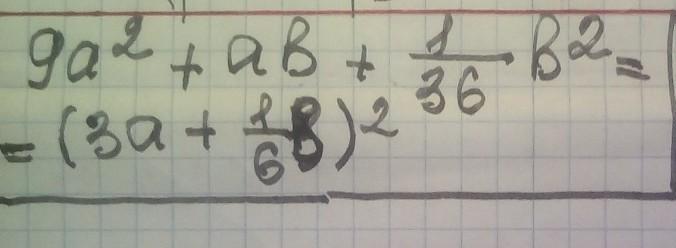 9a² + ab + 1/36 b² =
= (3a + 1/6 b)²